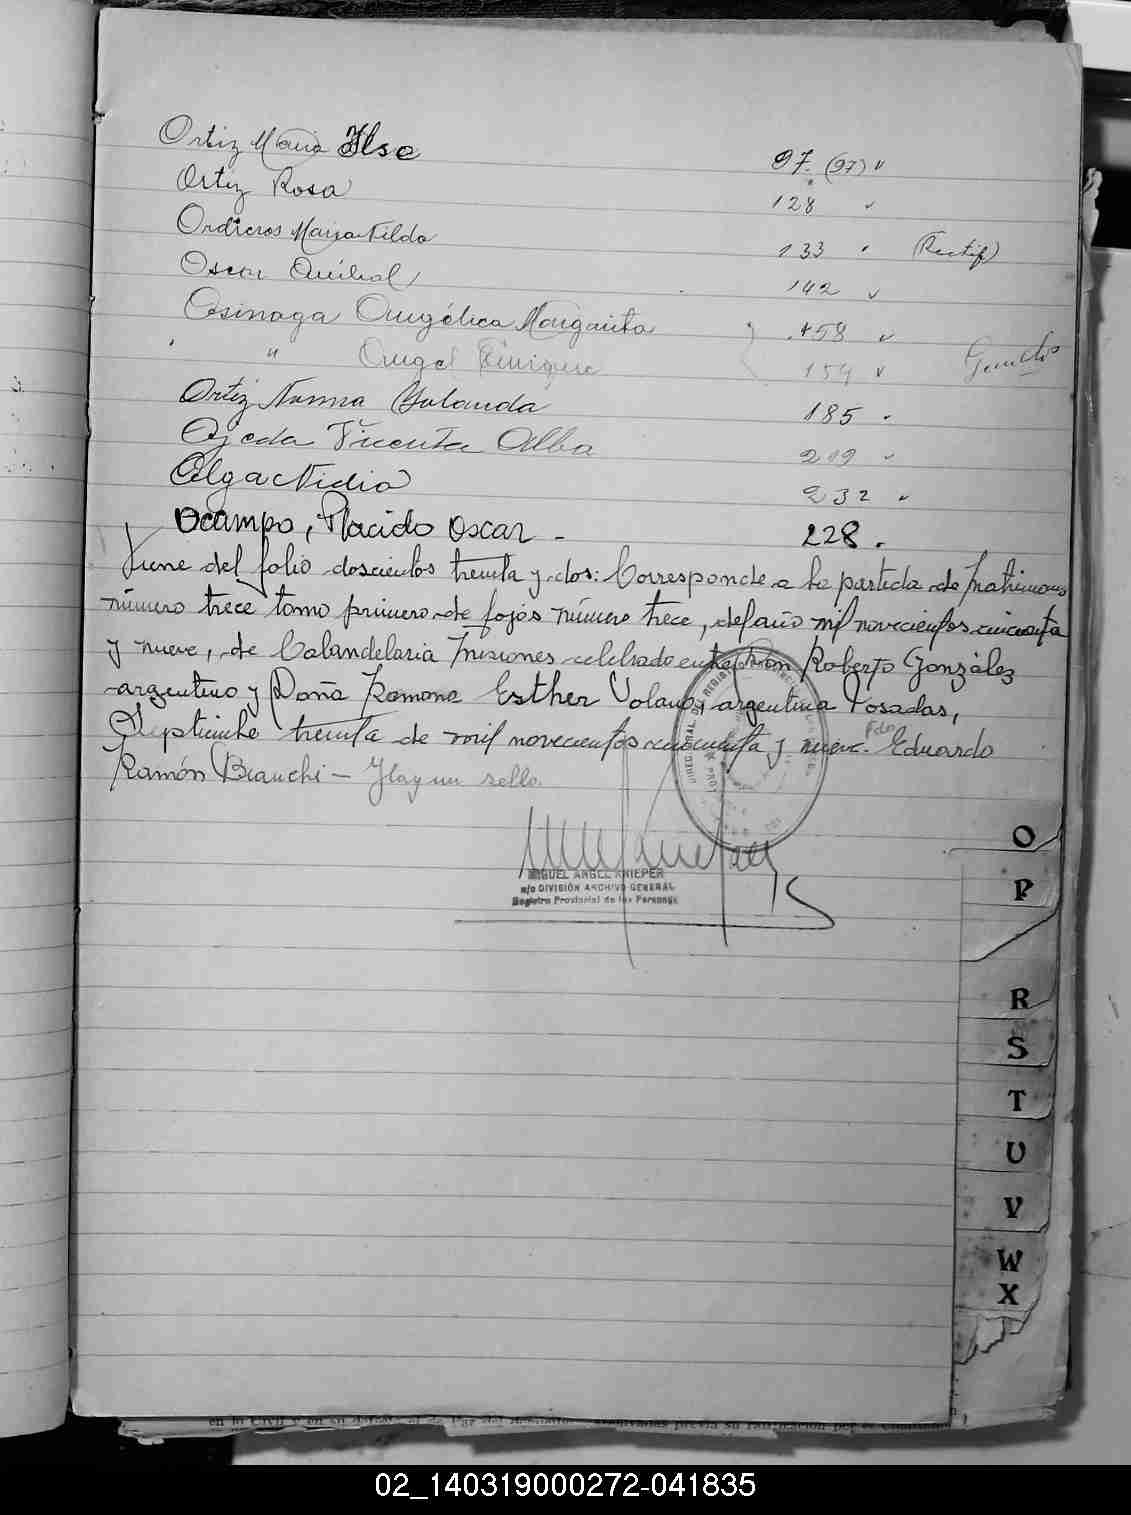 Ortiz Maria Ilse 97. (97) ✓
Ortiz Rosa 128 ✓
Ordieros Maria Nilda 133 (Rectif)
Oscar Anibal 142 ✓
Osinaga Angélica Margarita 158 ✓
" Angel Enrique 159 ✓
Ortiz Norma Yolanda 185
Ojeda Vicenta Alba 219 ✓
Olga Nidia 232 ✓
Ocampo, Placido Oscar - 228.
Viene del folio doscientos treinta y dos: Corresponde a la partida de Matrimonio
número trece tomo primero de fojas número trece, del año mil novecientos cincuenta
y nueve, de Candelaria Misiones celebrado entre Don Ramón Roberto González
argentino y Doña Ramona Esther argentina Posadas,
Septiembre treinta de mil novecientos cincuenta y nueve. Fdo Eduardo
Ramón Bianchi - Hay un sello.
MIGUEL ANGEL KNIEPER
a/c DIVISIÓN ARCHIVO GENERAL
Registro Provincial de las Personas
O
P
R
S
T
U
V
W
X
02_140319000272-041835